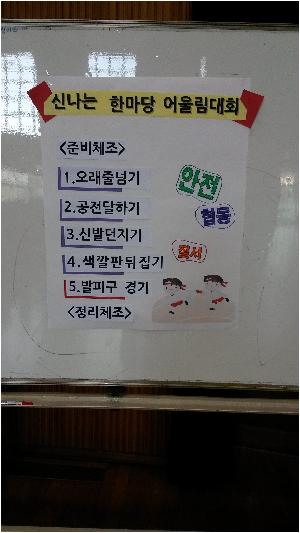 신나는 한마당 어울림대회
<준비체조>
1.오래줄넘기
2.공전달하기
3.신발던지기
4.색깔판뒤집기
5.발피구 경기
<정리체조>
안전
협동
질서